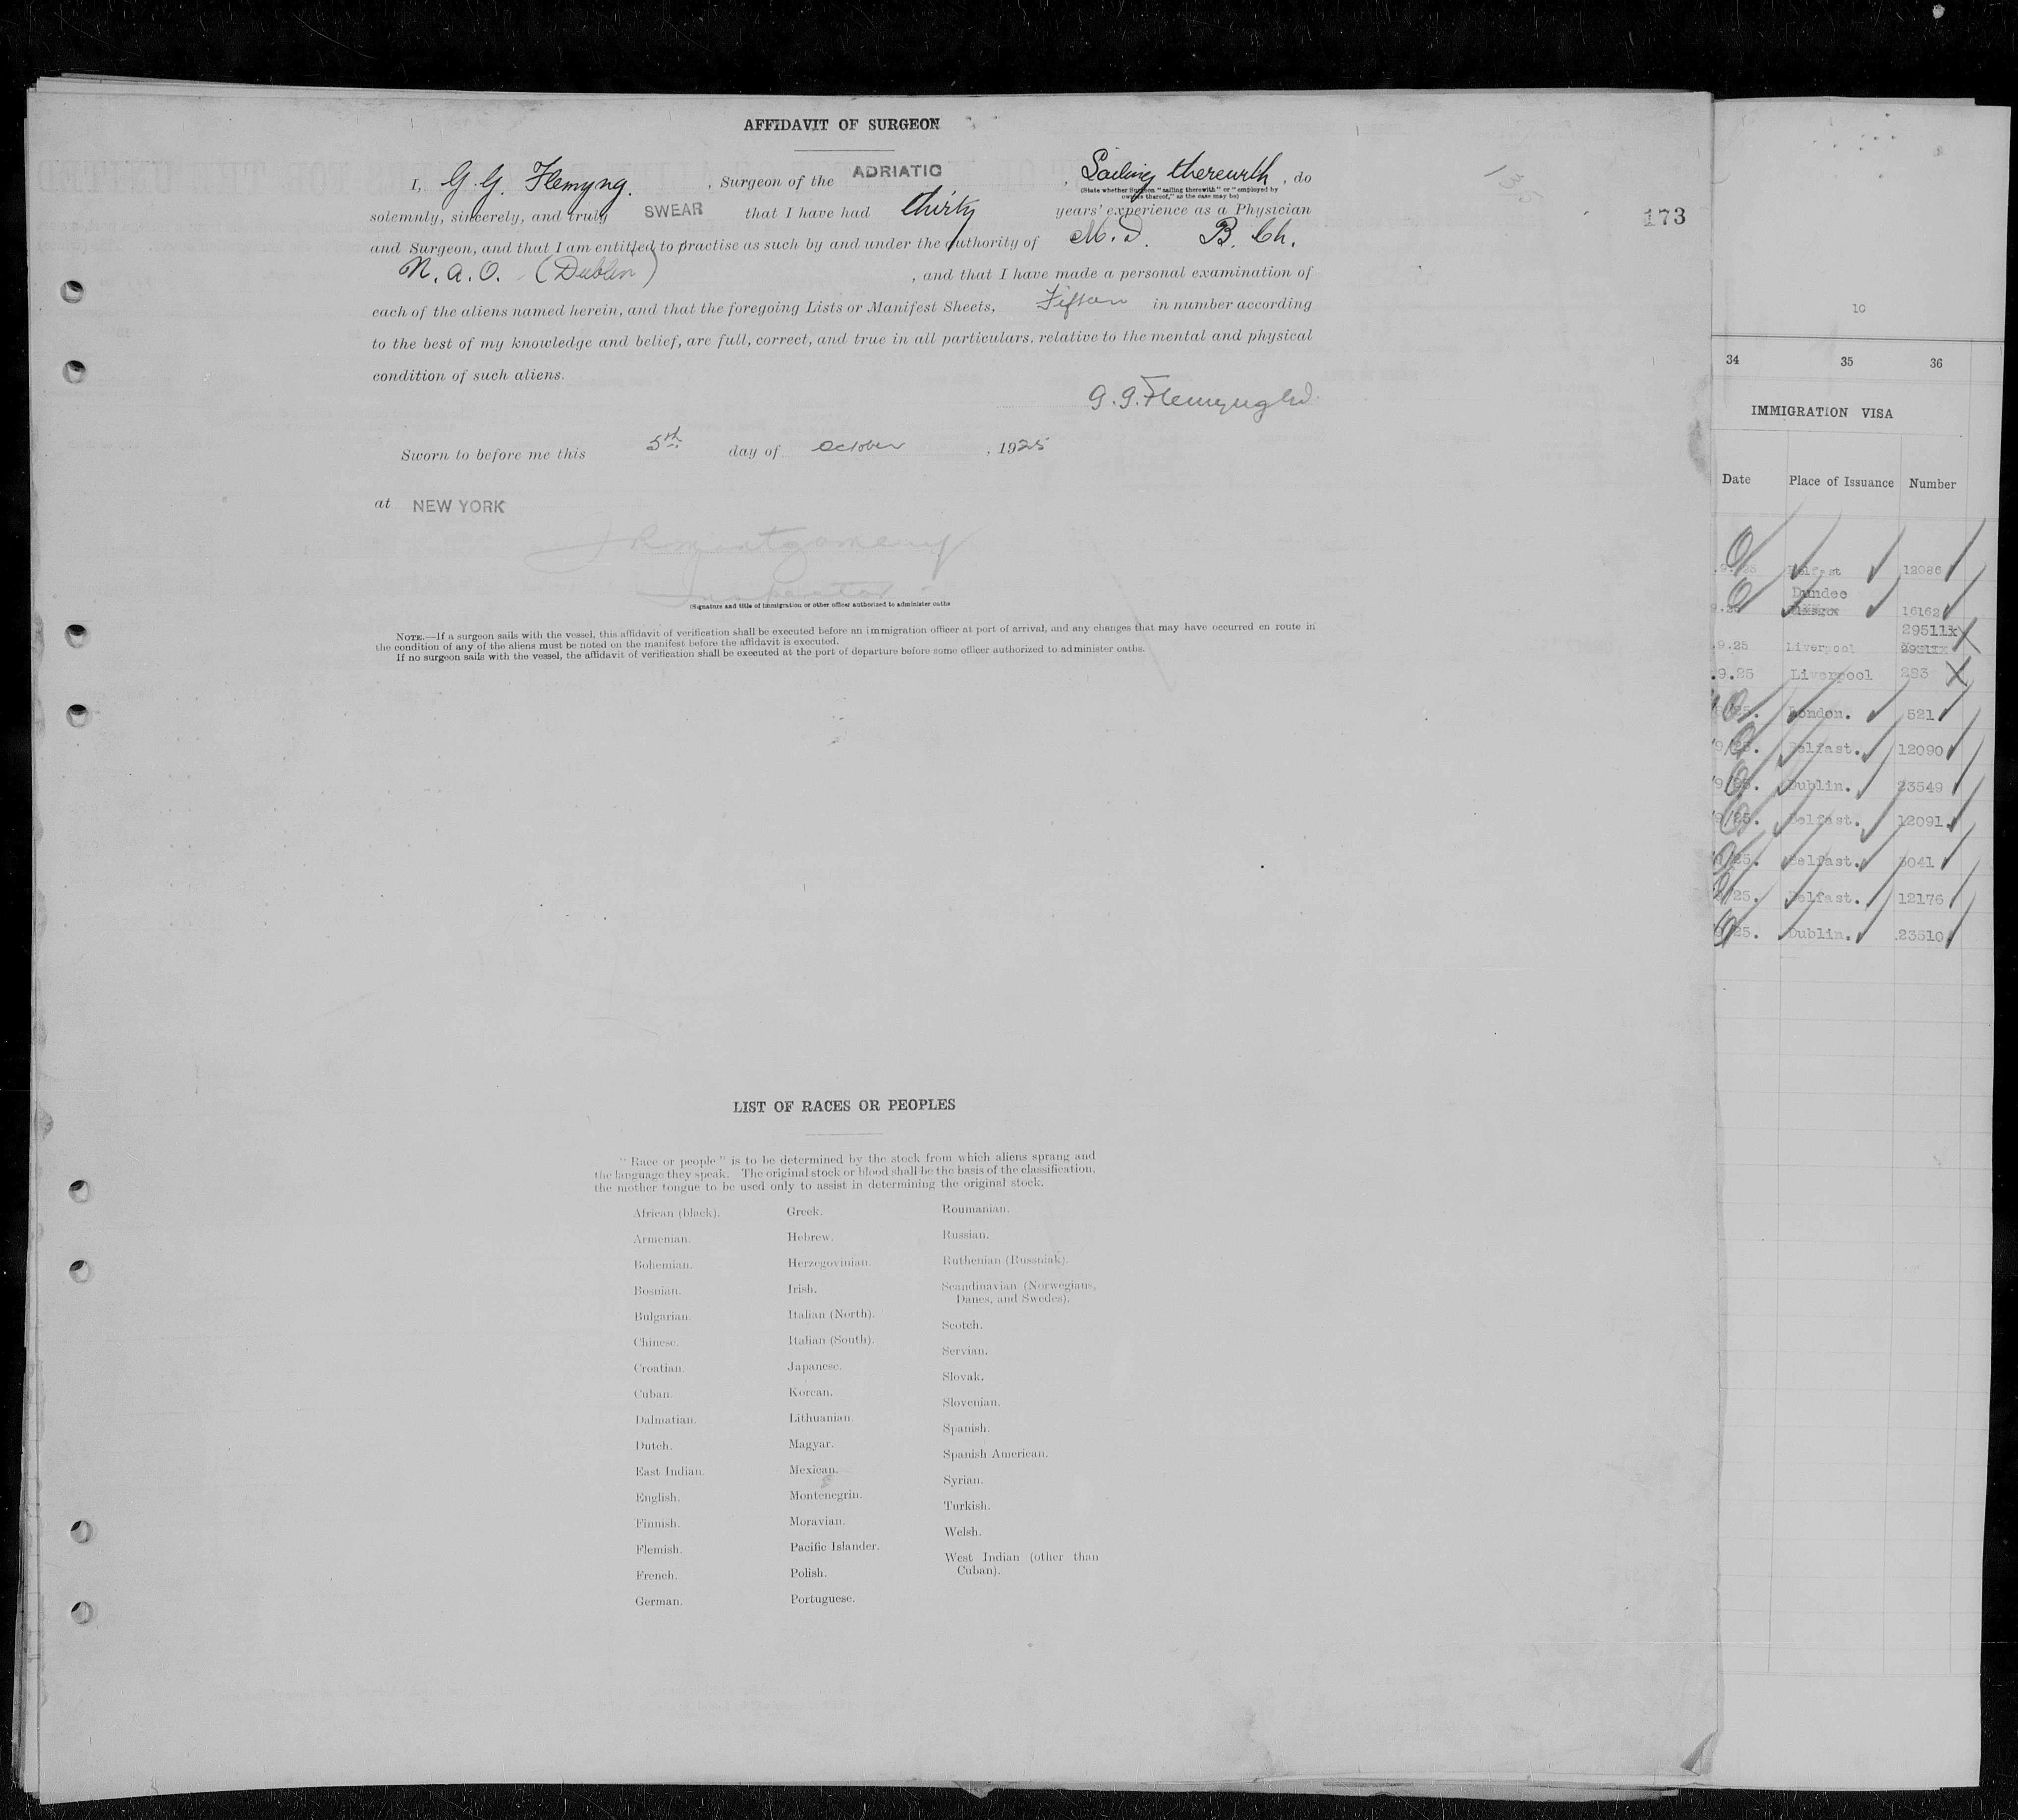 AFFIDAVIT OF SURGEON
I, G. G. Flemyng. , Surgeon of the ADRIATIC , Sailing therewith , do
(State whether Surgeon "sailing therewith" or "employed by
owners thereof," as the case may be)
solemnly, sincerely, and truly SWEAR that I have had thirty years' experience as a Physician
and Surgeon, and that I am entitled to practise as such by and under the authority of M.D. B. Ch.
N. A. O. (Dublin) , and that I have made a personal examination of
each of the aliens named herein, and that the foregoing Lists or Manifest Sheets, Fifteen in number according
to the best of my knowledge and belief, are full, correct, and true in all particulars, relative to the mental and physical
condition of such aliens.
G. G. Flemyng
Sworn to before me this 5th day of October , 1925
at NEW YORK
Montgomery
Inspector
(Signature and title of immigration or other officer authorized to administer oaths
NOTE.—If a surgeon sails with the vessel, this affidavit of verification shall be executed before an immigration officer at port of arrival, and any changes that may have occurred en route in
the condition of any of the aliens must be noted on the manifest before the affidavit is executed.
If no surgeon sails with the vessel, the affidavit of verification shall be executed at the port of departure before some officer authorized to administer oaths.
135
173
LIST OF RACES OR PEOPLES
"Race or people" is to be determined by the stock from which aliens sprang and
the language they speak. The original stock or blood shall be the basis of the classification,
the mother tongue to be used only to assist in determining the original stock.
African (black).
Armenian.
Bohemian.
Bosnian.
Bulgarian.
Chinese.
Croatian.
Cuban.
Dalmatian.
Dutch.
East Indian.
English.
Finnish.
Flemish.
French.
German.
Greek.
Hebrew.
Herzegovinian.
Irish.
Italian (North).
Italian (South).
Japanese.
Korean.
Lithuanian.
Magyar.
Mexican.
Montenegrin.
Moravian.
Pacific Islander.
Polish.
Portuguese.
Roumanian.
Russian.
Ruthenian (Russniak).
Scandinavian (Norwegians,
Danes, and Swedes).
Scotch.
Servian.
Slovak.
Slovenian.
Spanish.
Spanish American.
Syrian.
Turkish.
Welsh.
West Indian (other than
Cuban).
10
34 35 36
IMMIGRATION VISA
Date Place of Issuance Number
.9.25 Belfast 12086
Dundee
9.25 Glasgow 16162
29511
.9.25 Liverpool
.9.25 Liverpool 293
25. London. 521
9/25. Belfast. 12090
9/25. Dublin. 23549
9/25. Belfast. 12091.
25. Belfast. 3041
25. Belfast. 12176
9/25. Dublin. 23510